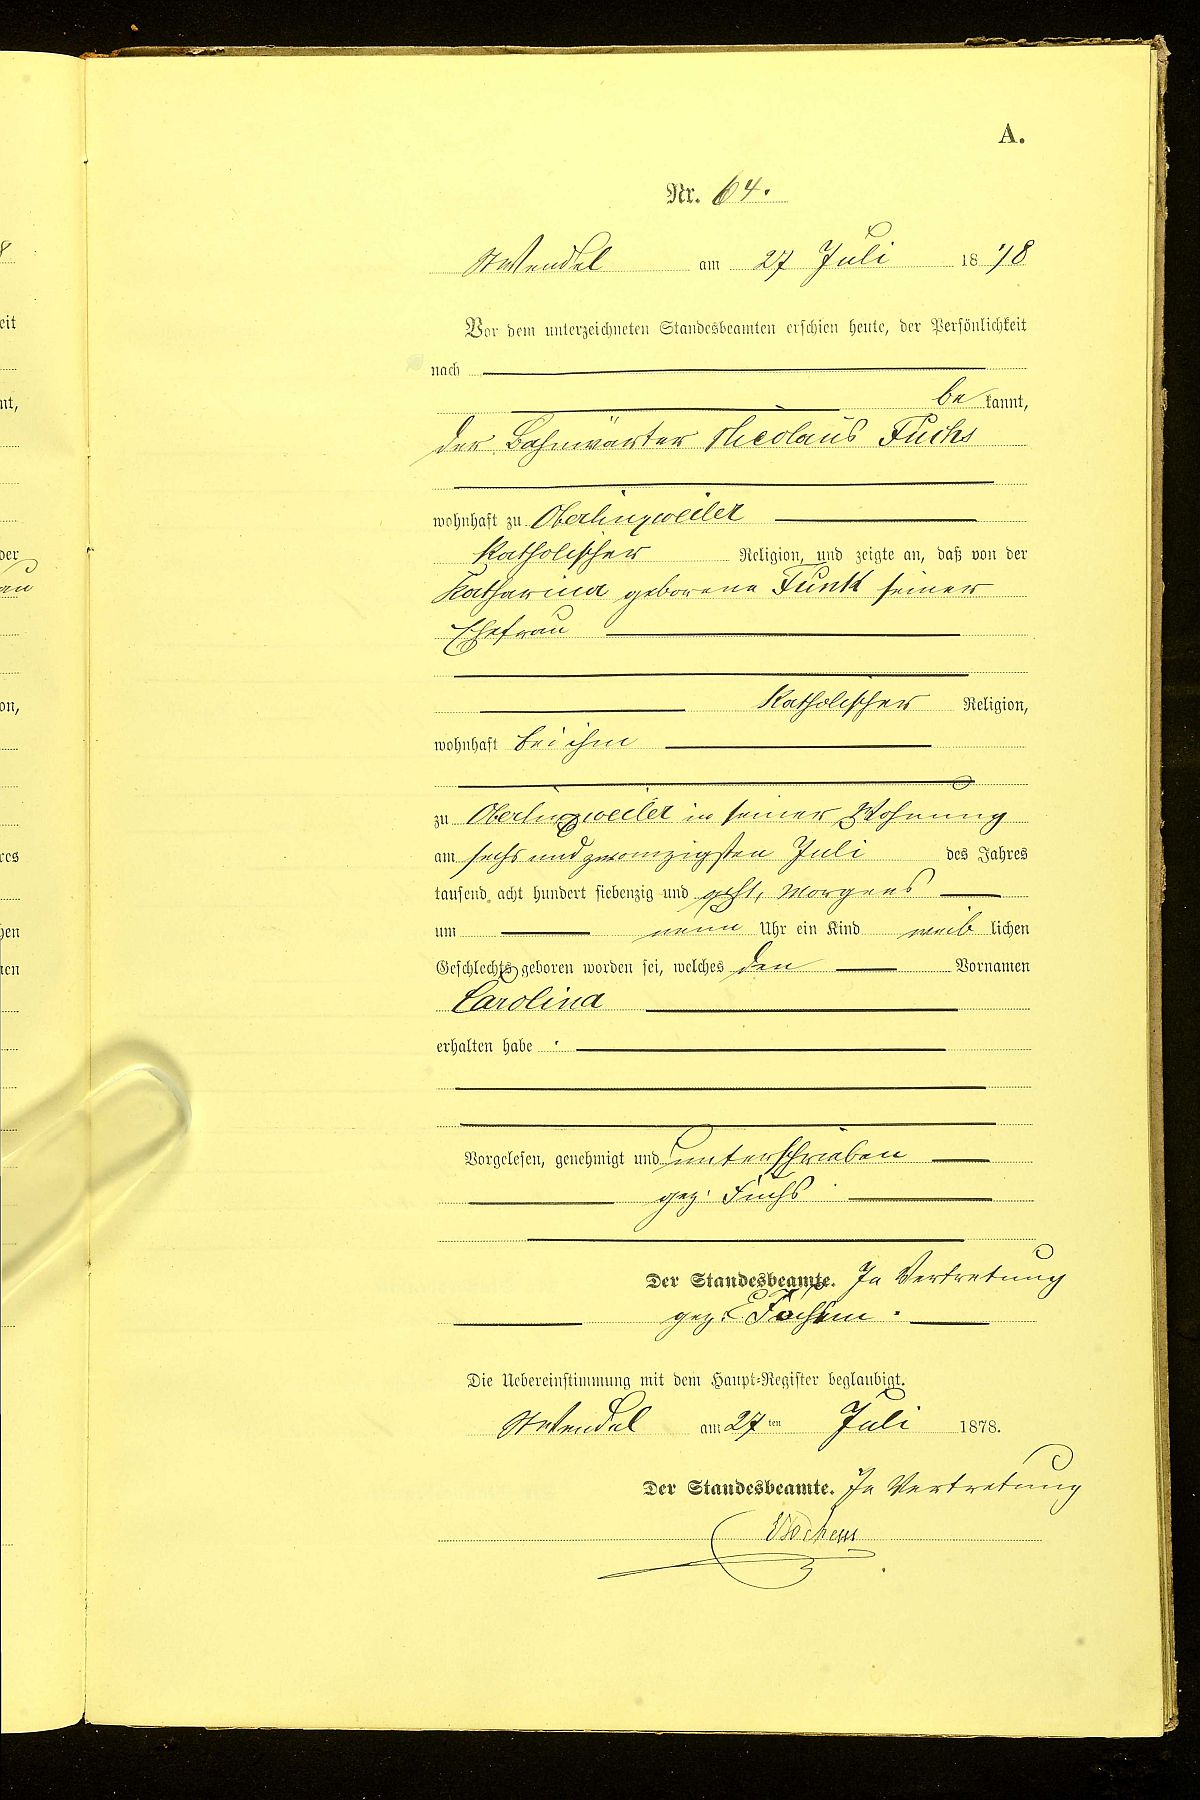 A.
Nr. 64.
St Wendel am 27 Juli 1878
Vor dem unterzeichneten Standesbeamten erschien heute, der Persönlichkeit
nach
be kannt,
der Bahnwärter Nicolaus Fuchs
wohnhaft zu Oberlinxweiler
katholischer Religion, und zeigte an, daß von der
Katharina geborene Funk seiner
Ehefrau
katholischer Religion,
wohnhaft bei ihm
zu Oberlinxweiler in seiner Wohnung
am sechs und zwanzigsten Juli des Jahres
tausend acht hundert siebenzig und acht, Morgens
um neun Uhr ein Kind weib lichen
Geschlechts geboren worden sei, welches den Vornamen
Carolina
erhalten habe
Vorgelesen, genehmigt und unterschrieben
gez. Fuchs
Der Standesbeamte. In Vertretung
gez:
Die Uebereinstimmung mit dem Haupt-Register beglaubigt.
St Wendel am 27ten Juli 1878.
Der Standesbeamte. In Vertretung